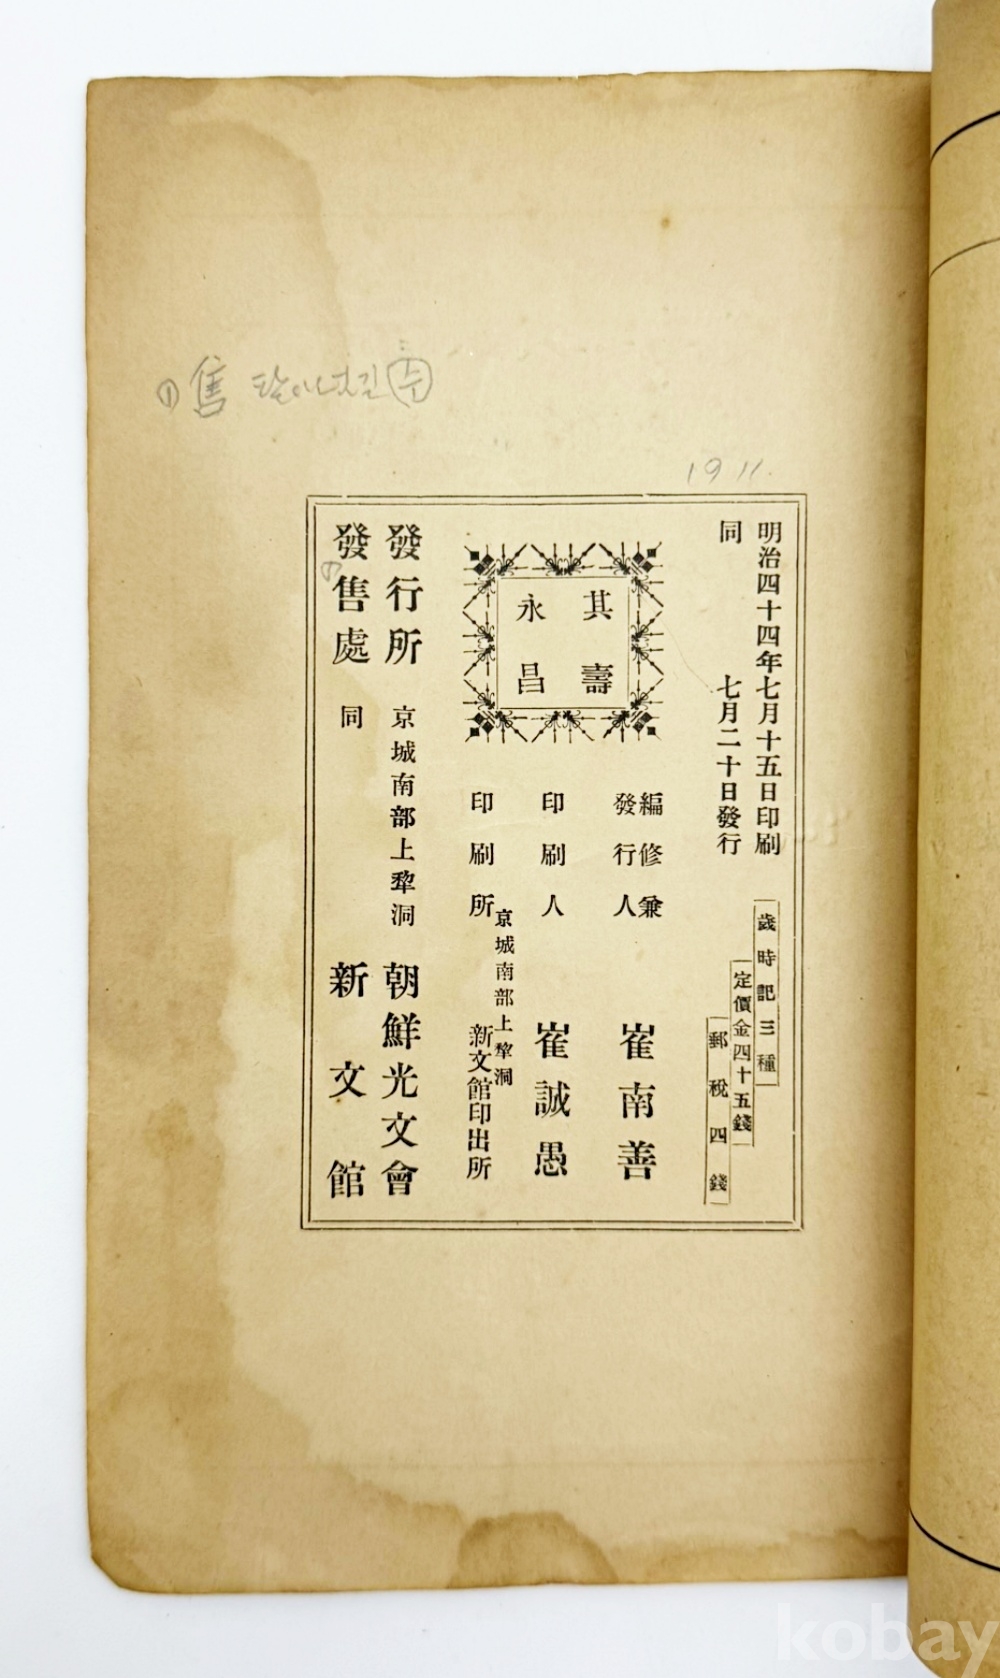 ① 售 팔
1911.
明治四十四年七月十五日印刷
同 七月二十日發行
歲時記三種
定價金四十五錢
郵稅四錢
其壽
永昌
編修兼
發行人 崔南善
印刷人 崔誠愚
印刷所 京城南部上犂洞
新文館印出所
發行所 京城南部上犂洞 朝鮮光文會
發售處 同 新文館
kobay